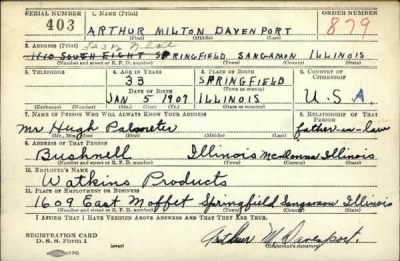 SERIAL NUMBER 1. NAME (Print) ORDER NUMBER
403 ARTHUR MILTON DAVENPORT 879
(First) (Middle) (Last)
2. ADDRESS (Print)
1110 SOUTH EIGHT SPRINGFIELD SANGAMON ILLINOIS
(Number and street or R. F. D. number) (Town) (County) (State)
3. TELEPHONE 4. AGE IN YEARS 5. PLACE OF BIRTH 6. COUNTRY OF CITIZENSHIP
33 SPRINGFIELD
DATE OF BIRTH (Town or county)
JAN 5 1907 ILLINOIS U.S.A.
(Exchange) (Number) (Mo.) (Day) (Yr.) (State or country)
7. NAME OF PERSON WHO WILL ALWAYS KNOW YOUR ADDRESS 8. RELATIONSHIP OF THAT PERSON
Mr Hugh Palmeter father-in-law
(Mr., Mrs., Miss) (First) (Middle) (Last)
9. ADDRESS OF THAT PERSON
Bushnell Illinois McDonna Illinois
(Number and street or R. F. D. number) (Town) (County) (State)
10. EMPLOYER'S NAME
Watkins Products
11. PLACE OF EMPLOYMENT OR BUSINESS
1609 East Moffet Springfield Sangamon Illinois
(Number and street or R. F. D. number) (Town) (County) (State)
I AFFIRM THAT I HAVE VERIFIED ABOVE ANSWERS AND THAT THEY ARE TRUE.
REGISTRATION CARD
D. S. S. Form 1 (over) Arthur M. Davenport
(Registrant's signature)